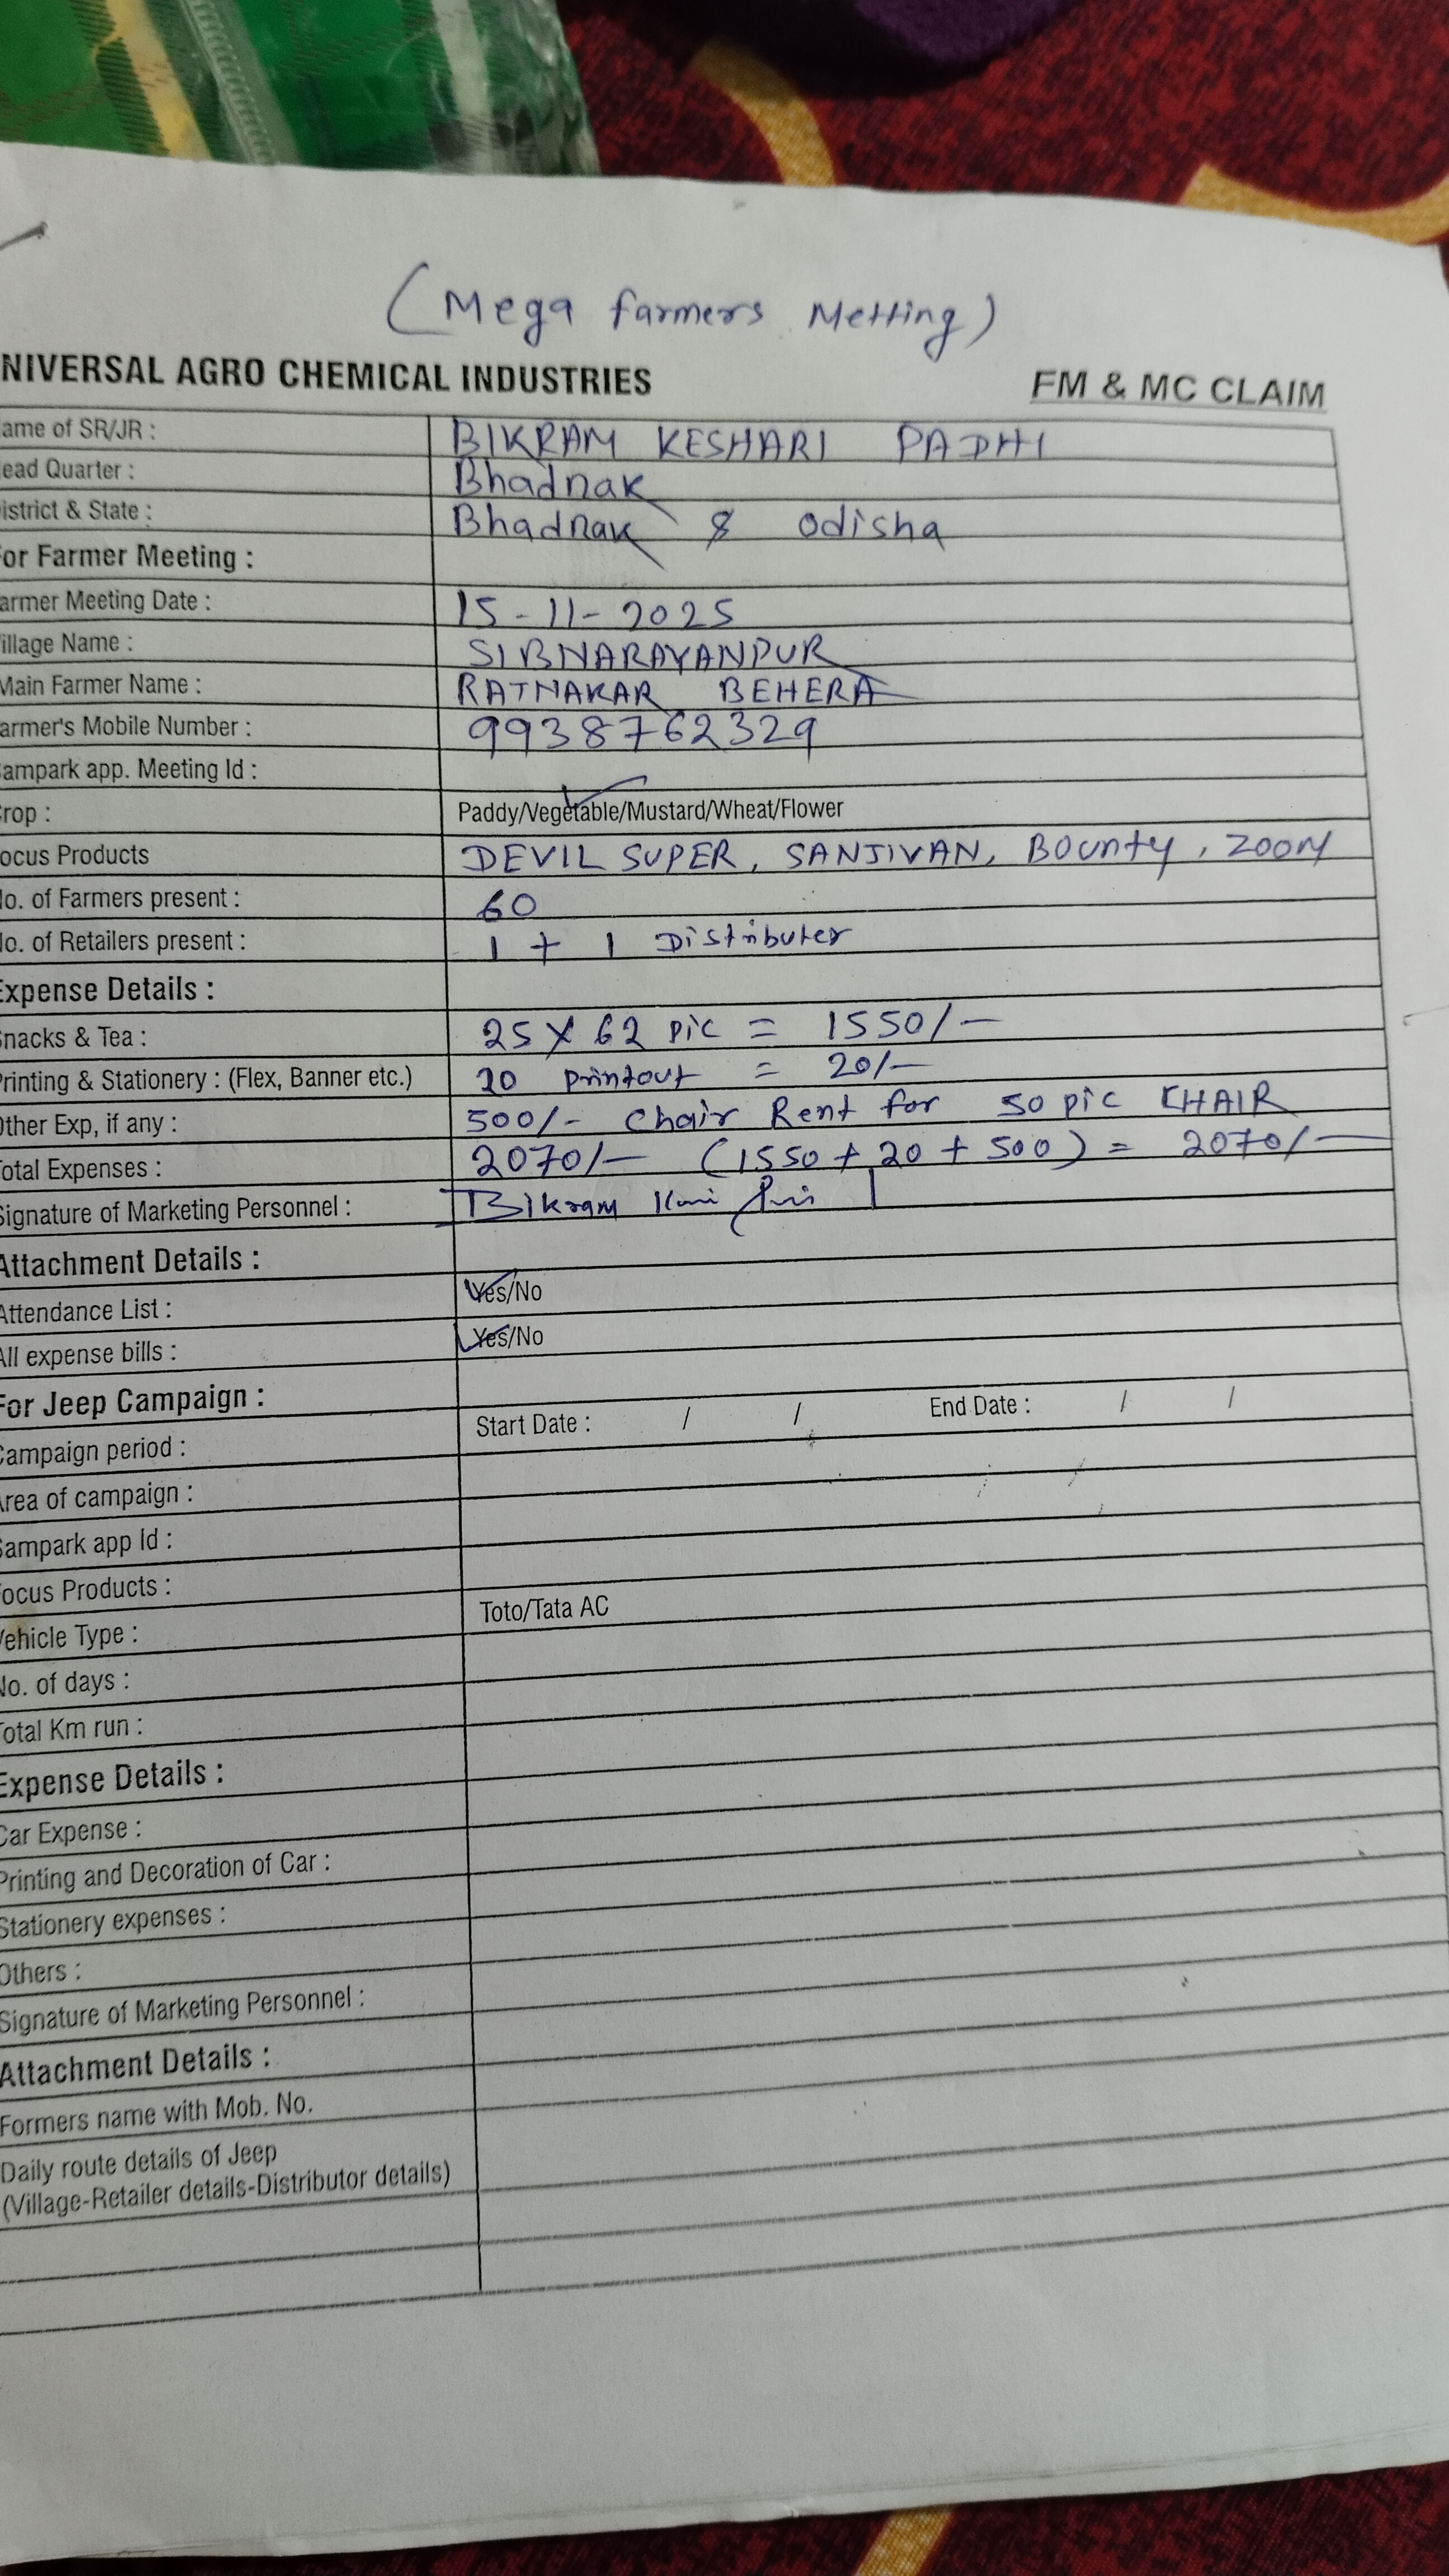 (Mega farmers Metting)
NIVERSAL AGRO CHEMICAL INDUSTRIES FM & MC CLAIM
ame of SR/JR : BIKRAM KESHARI PADHI
ead Quarter : Bhadrak
istrict & State : Bhadrak & odisha
or Farmer Meeting :
armer Meeting Date : 15-11-2025
illage Name : SIBNARAYANPUR
Main Farmer Name : RATNAKAR BEHERA
armer's Mobile Number : 9938762329
ampark app. Meeting Id :
rop : Paddy/Vegetable/Mustard/Wheat/Flower
ocus Products DEVIL SUPER, SANJIVAN, Bounty, ZOOM
o. of Farmers present : 60
o. of Retailers present : 1 + 1 Distributer
Expense Details :
nacks & Tea : 25 X 62 pic = 1550/-
rinting & Stationery : (Flex, Banner etc.) 20 printout = 20/-
Other Exp, if any : 500/- Chair Rent for 50 pic CHAIR
otal Expenses : 2070/- (1550 + 20 + 500) = 2070/-
Signature of Marketing Personnel : Bikram
Attachment Details :
Attendance List : Yes/No
All expense bills : Yes/No
For Jeep Campaign :
Campaign period : Start Date : / / End Date : / /
Area of campaign :
Sampark app Id :
ocus Products :
Vehicle Type : Toto/Tata AC
No. of days :
Total Km run :
Expense Details :
Car Expense :
Printing and Decoration of Car :
Stationery expenses :
Others :
Signature of Marketing Personnel :
Attachment Details :
Formers name with Mob. No.
Daily route details of Jeep
(Village-Retailer details-Distributor details)